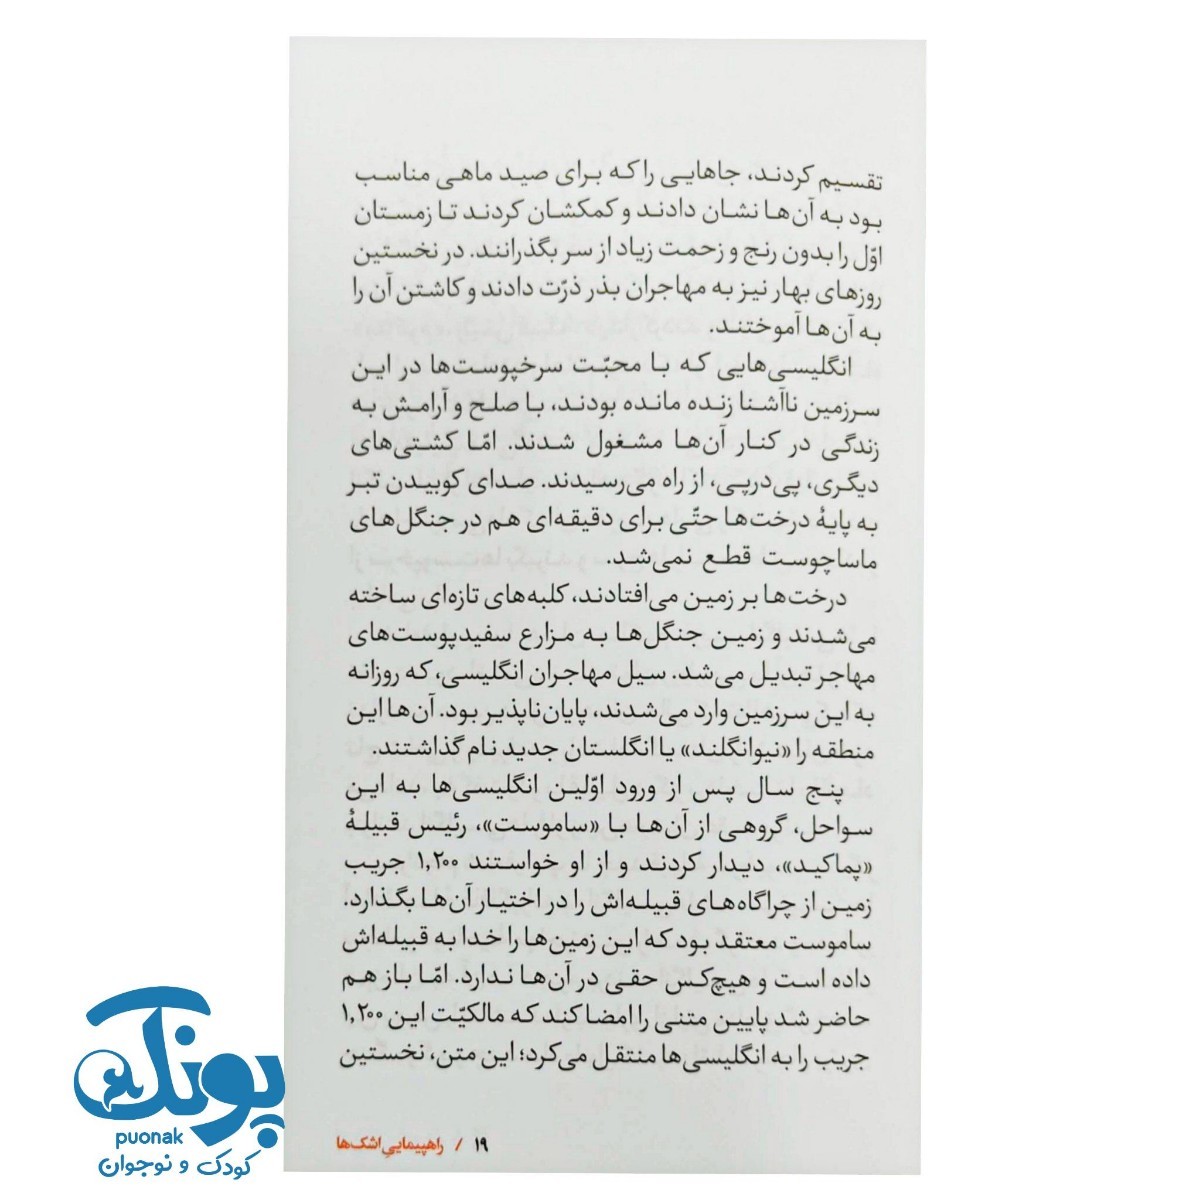 تقسیم کردند، جاهایی را که برای صید ماهی مناسب
بود به آن‌ها نشان دادند و کمکشان کردند تا زمستان
اوّل را بدون رنج و زحمت زیاد از سر بگذرانند. در نخستین
روزهای بهار نیز به مهاجران بذر ذرّت دادند و کاشتن آن را
به آن‌ها آموختند.
انگلیسی‌هایی که با محبّت سرخپوست‌ها در این
سرزمین ناآشنا زنده مانده بودند، با صلح و آرامش به
زندگی در کنار آن‌ها مشغول شدند. امّا کشتی‌های
دیگری، پی‌درپی، از راه می‌رسیدند. صدای کوبیدن تبر
به پایهٔ درخت‌ها حتّی برای دقیقه‌ای هم در جنگل‌های
ماساچوست قطع نمی‌شد.
درخت‌ها بر زمین می‌افتادند، کلبه‌های تازه‌ای ساخته
می‌شدند و زمین جنگل‌ها به مزارع سفیدپوست‌های
مهاجر تبدیل می‌شد. سیل مهاجران انگلیسی، که روزانه
به این سرزمین وارد می‌شدند، پایان‌ناپذیر بود. آن‌ها این
منطقه را «نیوانگلند» یا انگلستان جدید نام گذاشتند.
پنج سال پس از ورود اوّلین انگلیسی‌ها به این
سواحل، گروهی از آن‌ها با «ساموست»، رئیس قبیلهٔ
«پماکید»، دیدار کردند و از او خواستند ۱٬۲۰۰ جریب
زمین از چراگاه‌های قبیله‌اش را در اختیار آن‌ها بگذارد.
ساموست معتقد بود که این زمین‌ها را خدا به قبیله‌اش
داده است و هیچ‌کس حقی در آن‌ها ندارد. امّا باز هم
حاضر شد پایین متنی را امضا کند که مالکیّت این ۱٬۲۰۰
جریب را به انگلیسی‌ها منتقل می‌کرد؛ این متن، نخستین
۱۹ / راهپیماییِ اشک‌ها
پونک
puonak
کودک و نوجوان